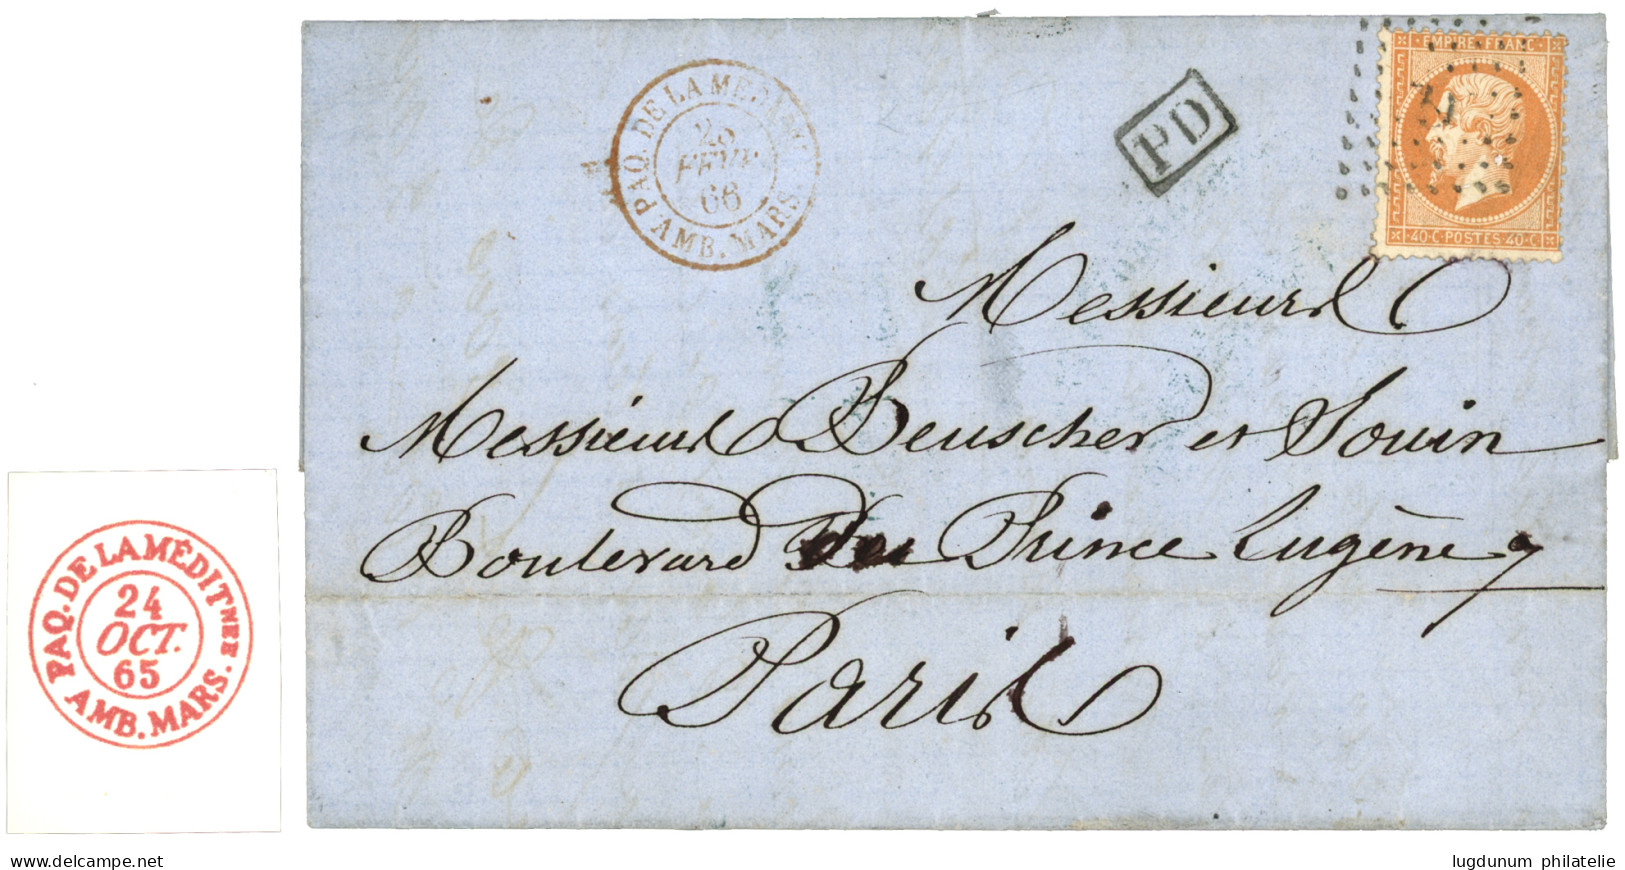 PAQ. DE LA MÉDIT
AMB. MARS.
66
PD
EMPIRE FRANC
40·C POSTES 40·C
Messieurs
Messieurs Beuscher et Souin
Boulevard du Prince Eugène
Paris
PAQ. DE LA MÉDITNÉE.
24
OCT.
65
AMB. MARS.
www.delcampe.net
lugdunum philatelie